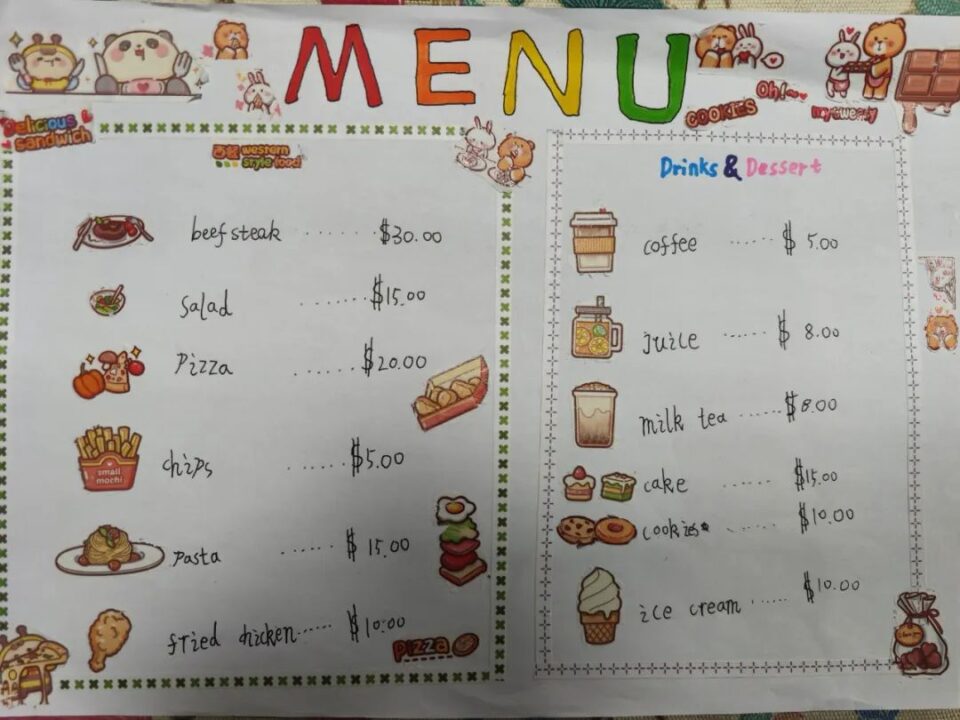 MENU
COOKIES
Oh!~
my tweety
Delicious
sandwich
西餐 western
style food
beef steak ........ $30.00
salad ....... $15.00
Pizza ...... $20.00
small
mochi
chips ...... $5.00
pasta ..... $15.00
fried chicken...... $10.00
Pizza
Drinks & Dessert
coffee ...... $5.00
juice ...... $8.00
milk tea ...... $8.00
cake ...... $15.00
cookies ...... $10.00
ice cream ...... $10.00